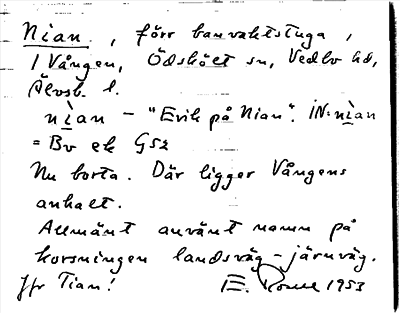 Nian, förr banvaktstuga,
i Vången, Ödsköлt sn, Vedbo hd,
Älvsb. l.
nìan – "Erik på Nian". iN: nìan
= Bv ek G52
Nu borta. Där ligger Vångens
anhalt.
Allmänt använt namn på
korsningen landsväg – järnväg.
Jfr Tian! E. 1953